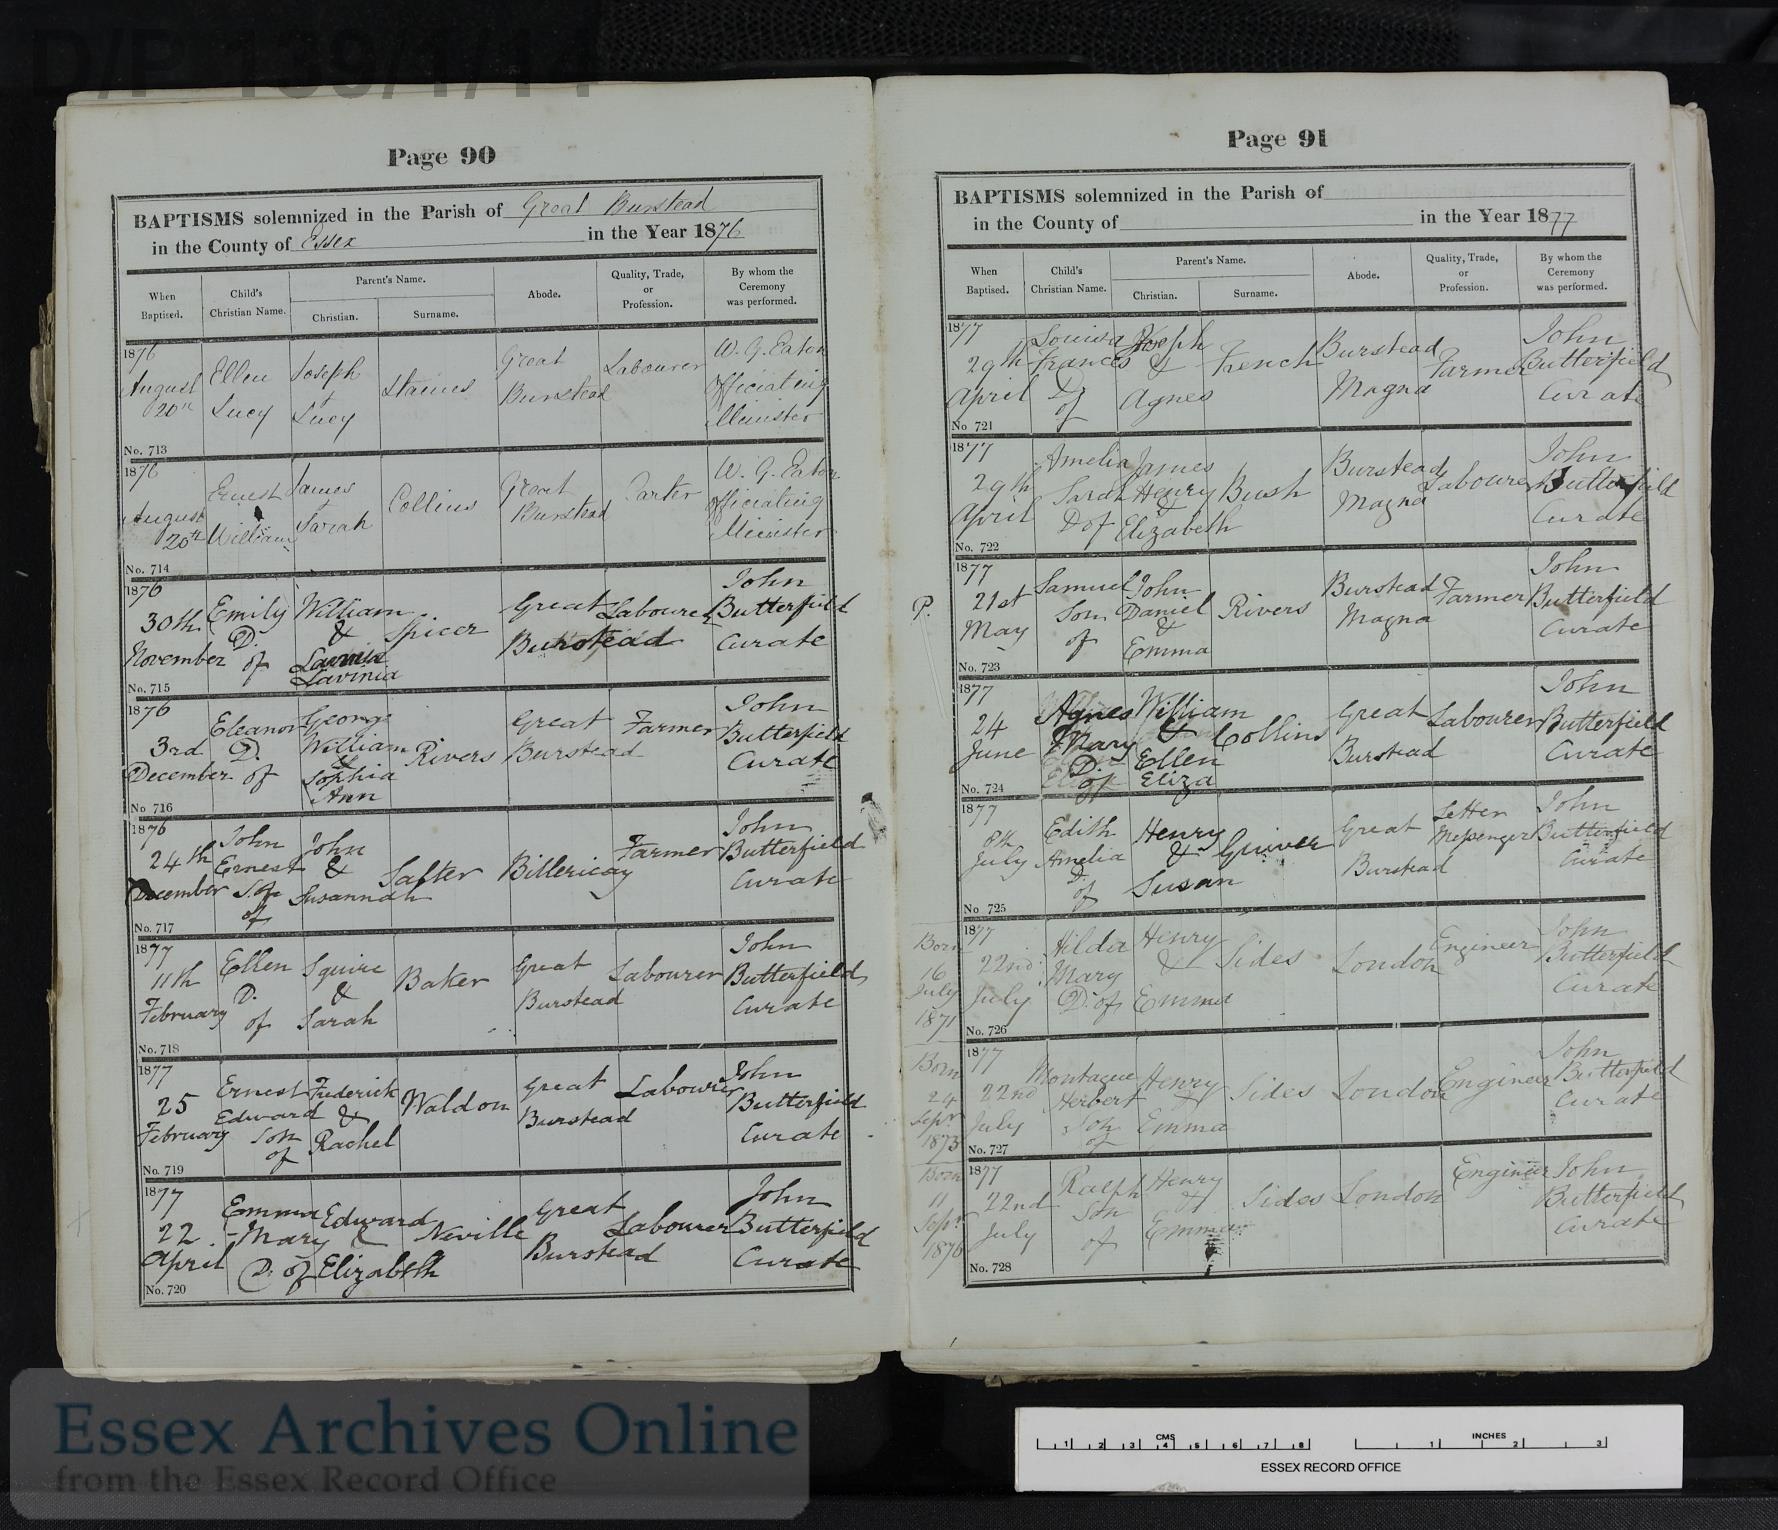 D/P 139/1/14
Page 90
BAPTISMS solemnized in the Parish of Great Burstead
in the County of Essex in the Year 1876
When Baptised. Child's Christian Name. Parent's Name. Christian. Surname. Abode. Quality, Trade, or Profession. By whom the Ceremony was performed.
1876 August 20th Ellen Lucy Joseph + Lucy Staines Great Burstead Labourer W. G. Eaton Officiating Minister
No. 713
1876 August 20th Ernest William James + Sarah Collins Great Burstead Carter W. G. Eaton Officiating Minister
No. 714
1876 30th November Emily D. of William & Lavinia Lavinia Spicer Great Burstead Labourer John Butterfield Curate
No. 715
1876 3rd December Eleanor D. of George William & Sophia Ann Rivers Great Burstead Farmer John Butterfield Curate
No 716
1876 24th December John Ernest S. of of John & Susannah Salter Billericay Farmer John Butterfield Curate
No. 717
1877 11th February Ellen D. of Squire & Sarah Baker Great Burstead Labourer John Butterfield Curate
No. 718
1877 25 February Ernest Edward Son of Frederick & Rachel Waldon Great Burstead Labourer John Butterfield Curate
No. 719
1877 22 April Emma Mary D. of Edward & Elizabeth Neville Great Burstead Labourer John Butterfield Curate
No. 720
Page 91
BAPTISMS solemnized in the Parish of
in the County of in the Year 1877
When Baptised. Child's Christian Name. Parent's Name. Christian. Surname. Abode. Quality, Trade, or Profession. By whom the Ceremony was performed.
1877 29th April Louisa Frances D. of Joseph & Agnes French Burstead Magna Farmer John Butterfield Curate
No 721
1877 29th April Amelia Sarah D of James Henry & Elizabeth Bush Burstead Magna Labourer John Butterfield Curate
No. 722
P. 1877 21st May Samuel Son of John Daniel & Emma Rivers Burstead Magna Farmer John Butterfield Curate
No. 723
1877 24 June Agnes Mary D. of William & Ellen Eliza Collins Great Burstead Labourer John Butterfield Curate
No. 724
1877 8th July Edith Amelia D. of Henry & Susan Guiver Great Burstead Letter Messenger John Butterfield Curate
No 725
Born 16 July 1871 1877 22nd July Hilda Mary D. of Henry & Emma Sides London Engineer John Butterfield Curate
No. 726
Born 24 Sepr 1873 1877 22nd July Montague Herbert Son of Henry & Emma Sides London Engineer John Butterfield Curate
No. 727
Born 11 Sepr 1876 1877 22nd July Ralph Son of Henry & Emma Sides London Engineer John Butterfield Curate
No. 728
Essex Archives Online
from the Essex Record Office
CMS
1 2 3 4 5 6 7 8
INCHES
1 2 3
ESSEX RECORD OFFICE